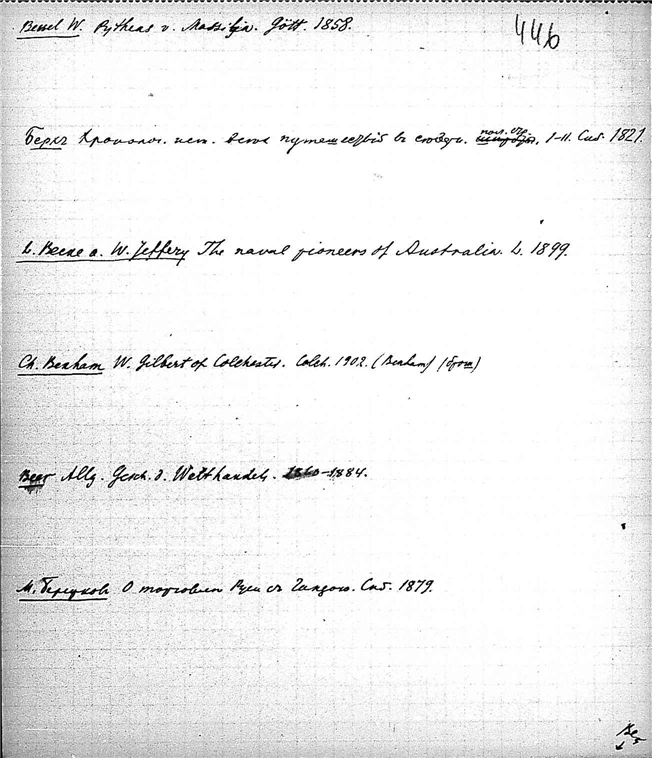 446
Bessel W. Pytheas v. Massilia. Gött. 1858.
Берхъ Хронолог. ист. всѣхъ путешествій въ сѣверн. пол. стр. I-II. Спб. 1821.
L. Becke a. W. Jeffery The naval pioneers of Australia. L. 1899.
Ch. Benham W. Gilbert of Colchester. Colch. 1902. (Benham) (брош)
Beer Allg. Gesch. d. Welthandels. 1860-1884.
М. Бережковъ О торговлѣ Руси съ Ганзою. Спб. 1879.